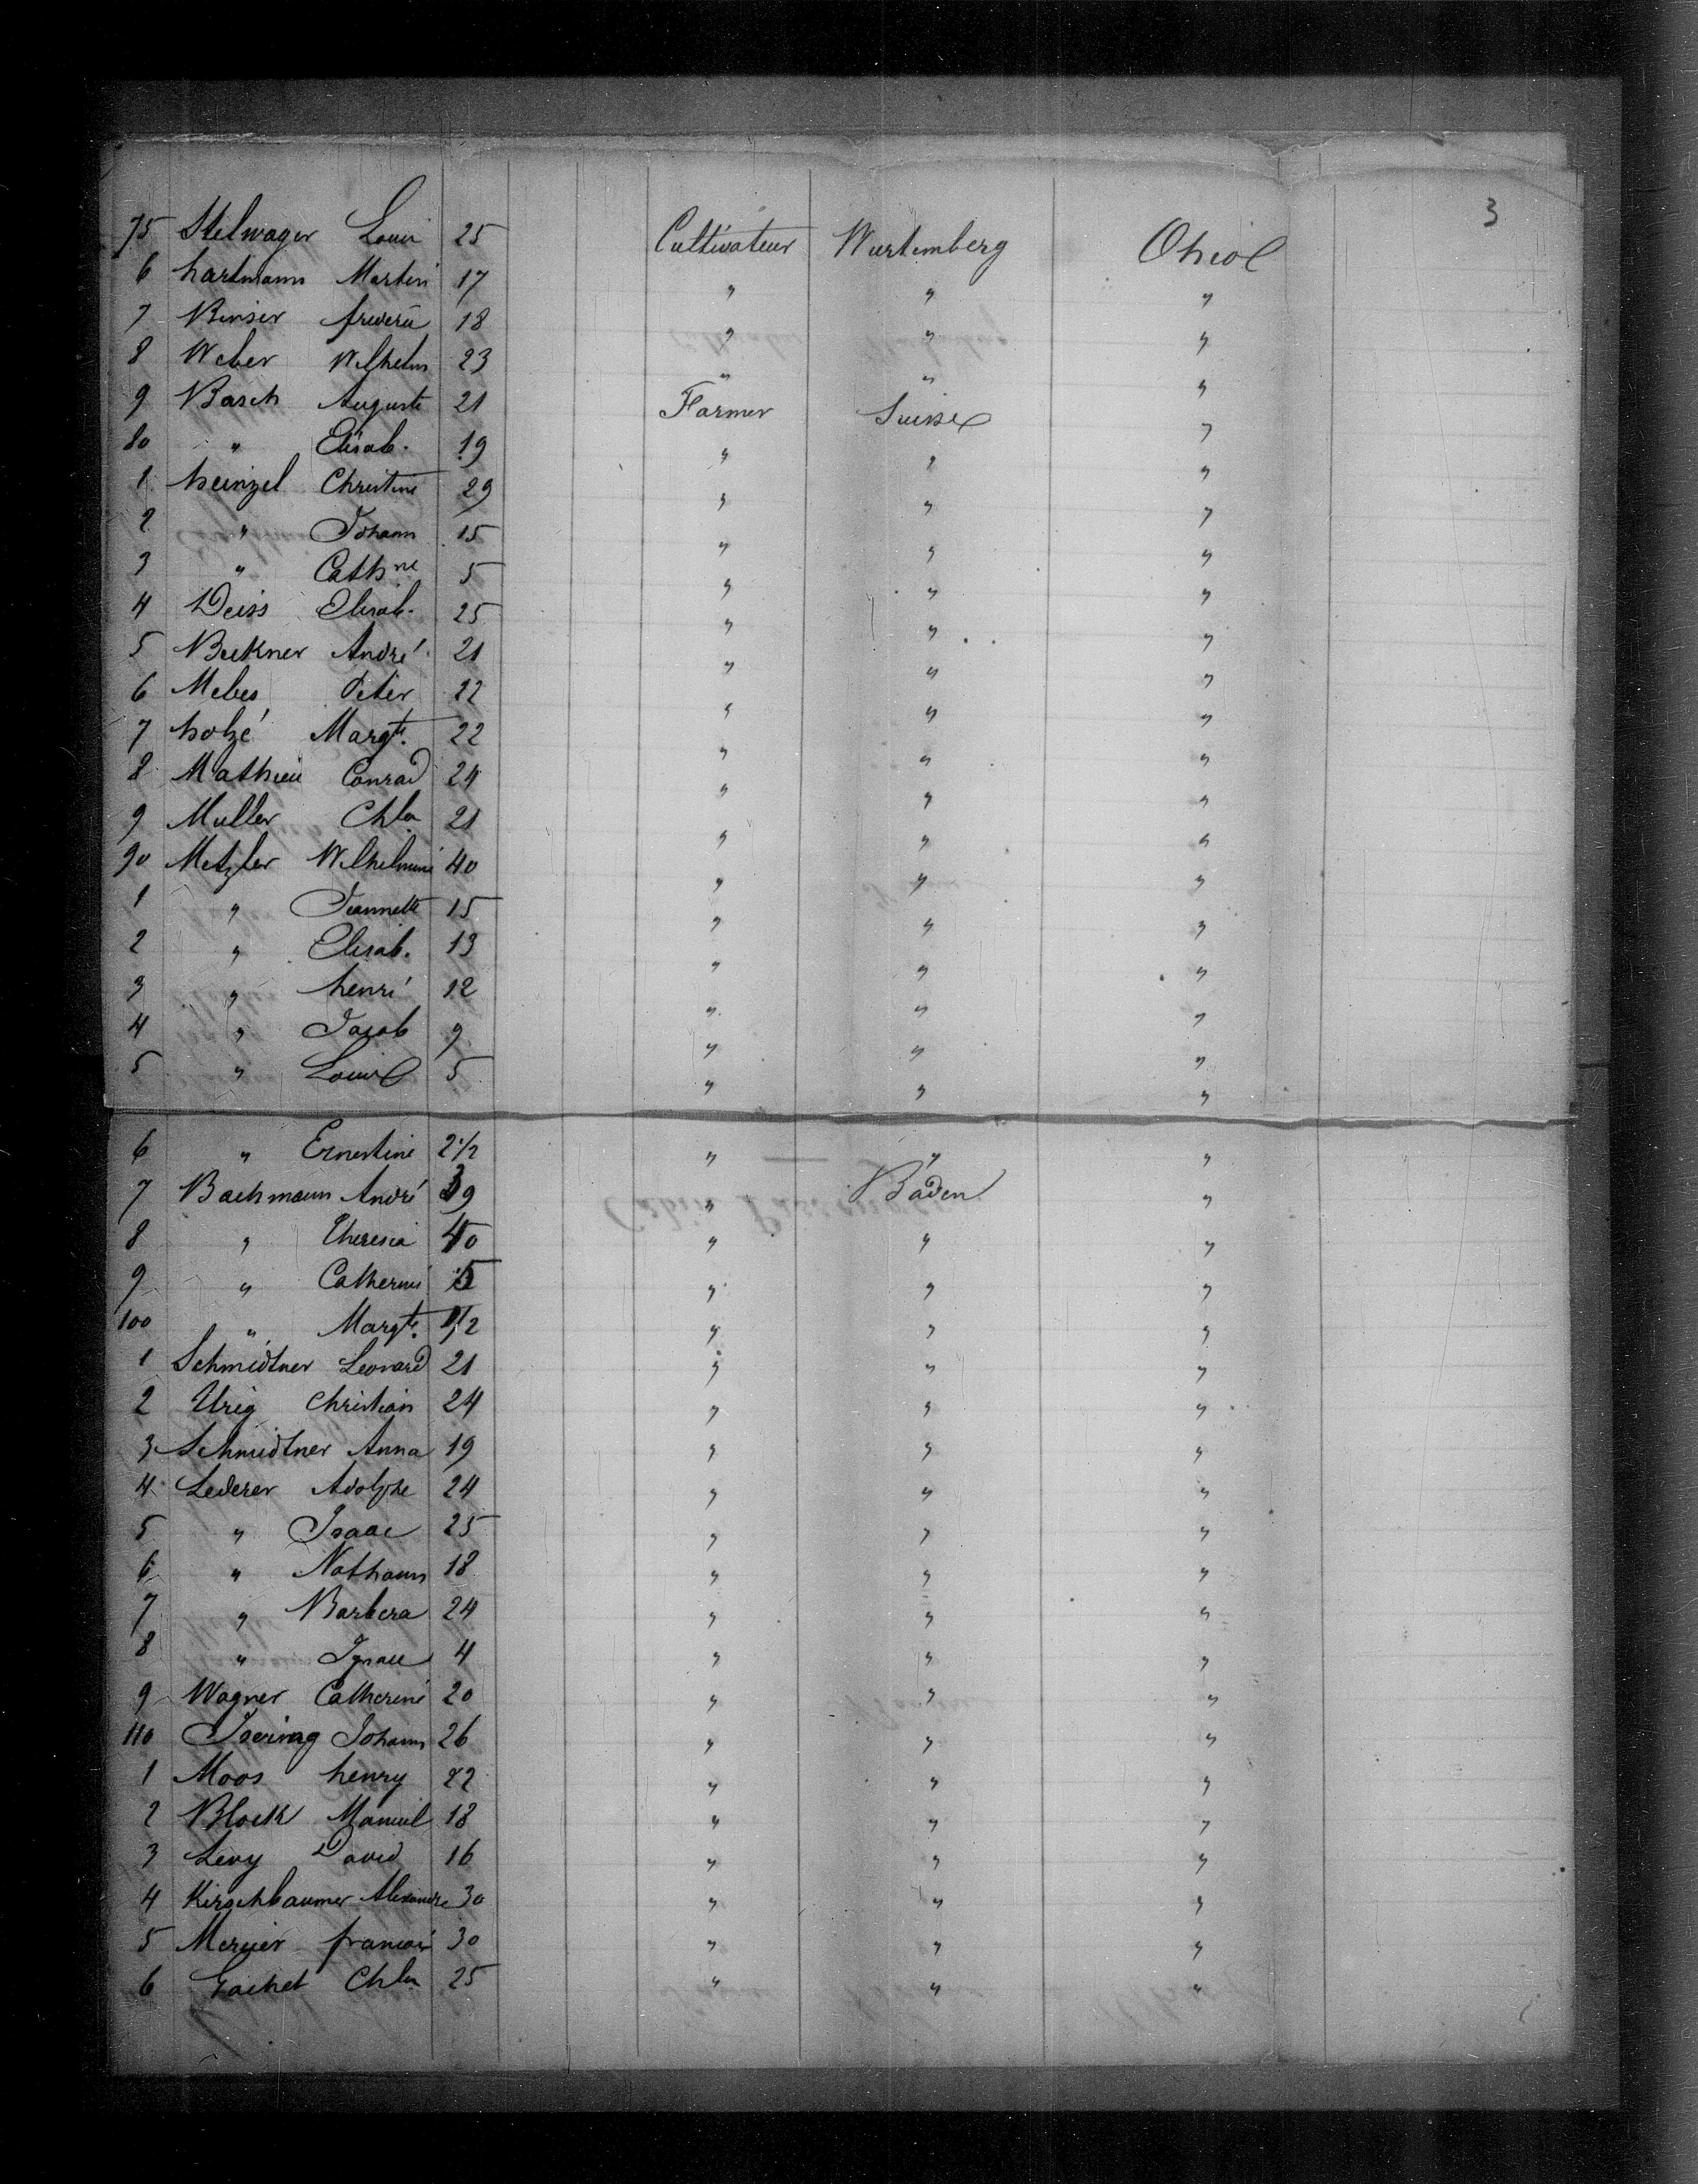 3
75 Stelwager Louis 25 Cultivateur Wurtemberg Ohio
6 hartmann Martin 17 " " "
7 Binser frederic 18 " " "
8 Weber Wilhelm 23 " " "
9 Basch Auguste 21 Farmer Suisse "
80 " Elisab. 19 " " "
1 heinzel Christine 29 " " "
2 " Johann 15 " " "
3 " Cathne 5 " " "
4 Deiss Elisab. 25 " " "
5 Beckner André 21 " " "
6 Mebes Peter 22 " " "
7 hotzé Margte. 22 " " "
8 Mathieu Conrad 24 " " "
9 Muller Chles 21 " " "
90 Metzler Wilhelmine 40 " " "
1 " Jeannette 15 " " "
2 " Elisab. 13 " " "
3 " henri 12 " " "
4 " Jacob 9 " " "
5 " Louise 5 " " "
6 " Ernestine 2 1/2 " " "
7 Bachmann André 39 " Baden "
8 " Theresia 40 " " "
9 " Catherine 5 " " "
100 " Margte. 1/2 " " "
1 Schmidtner Leonard 21 " " "
2 Urig Christian 24 " " "
3 Schmidtner Anna 19 " " "
4 Lederer Adolphe 24 " " "
5 " Isaac 25 " " "
6 " Nathann 18 " " "
7 " Barbera 24 " " "
8 " Ignace 4 " " "
9 Wagner Catherine 20 " " "
110 Johann 26 " " "
1 Moos henry 22 " " "
2 Block Manuel 18 " " "
3 Levy David 16 " " "
4 Kirschbaumer Alexandre 30 " " "
5 Mercier francois 30 " " "
6 Gachet Chles 25 " " "